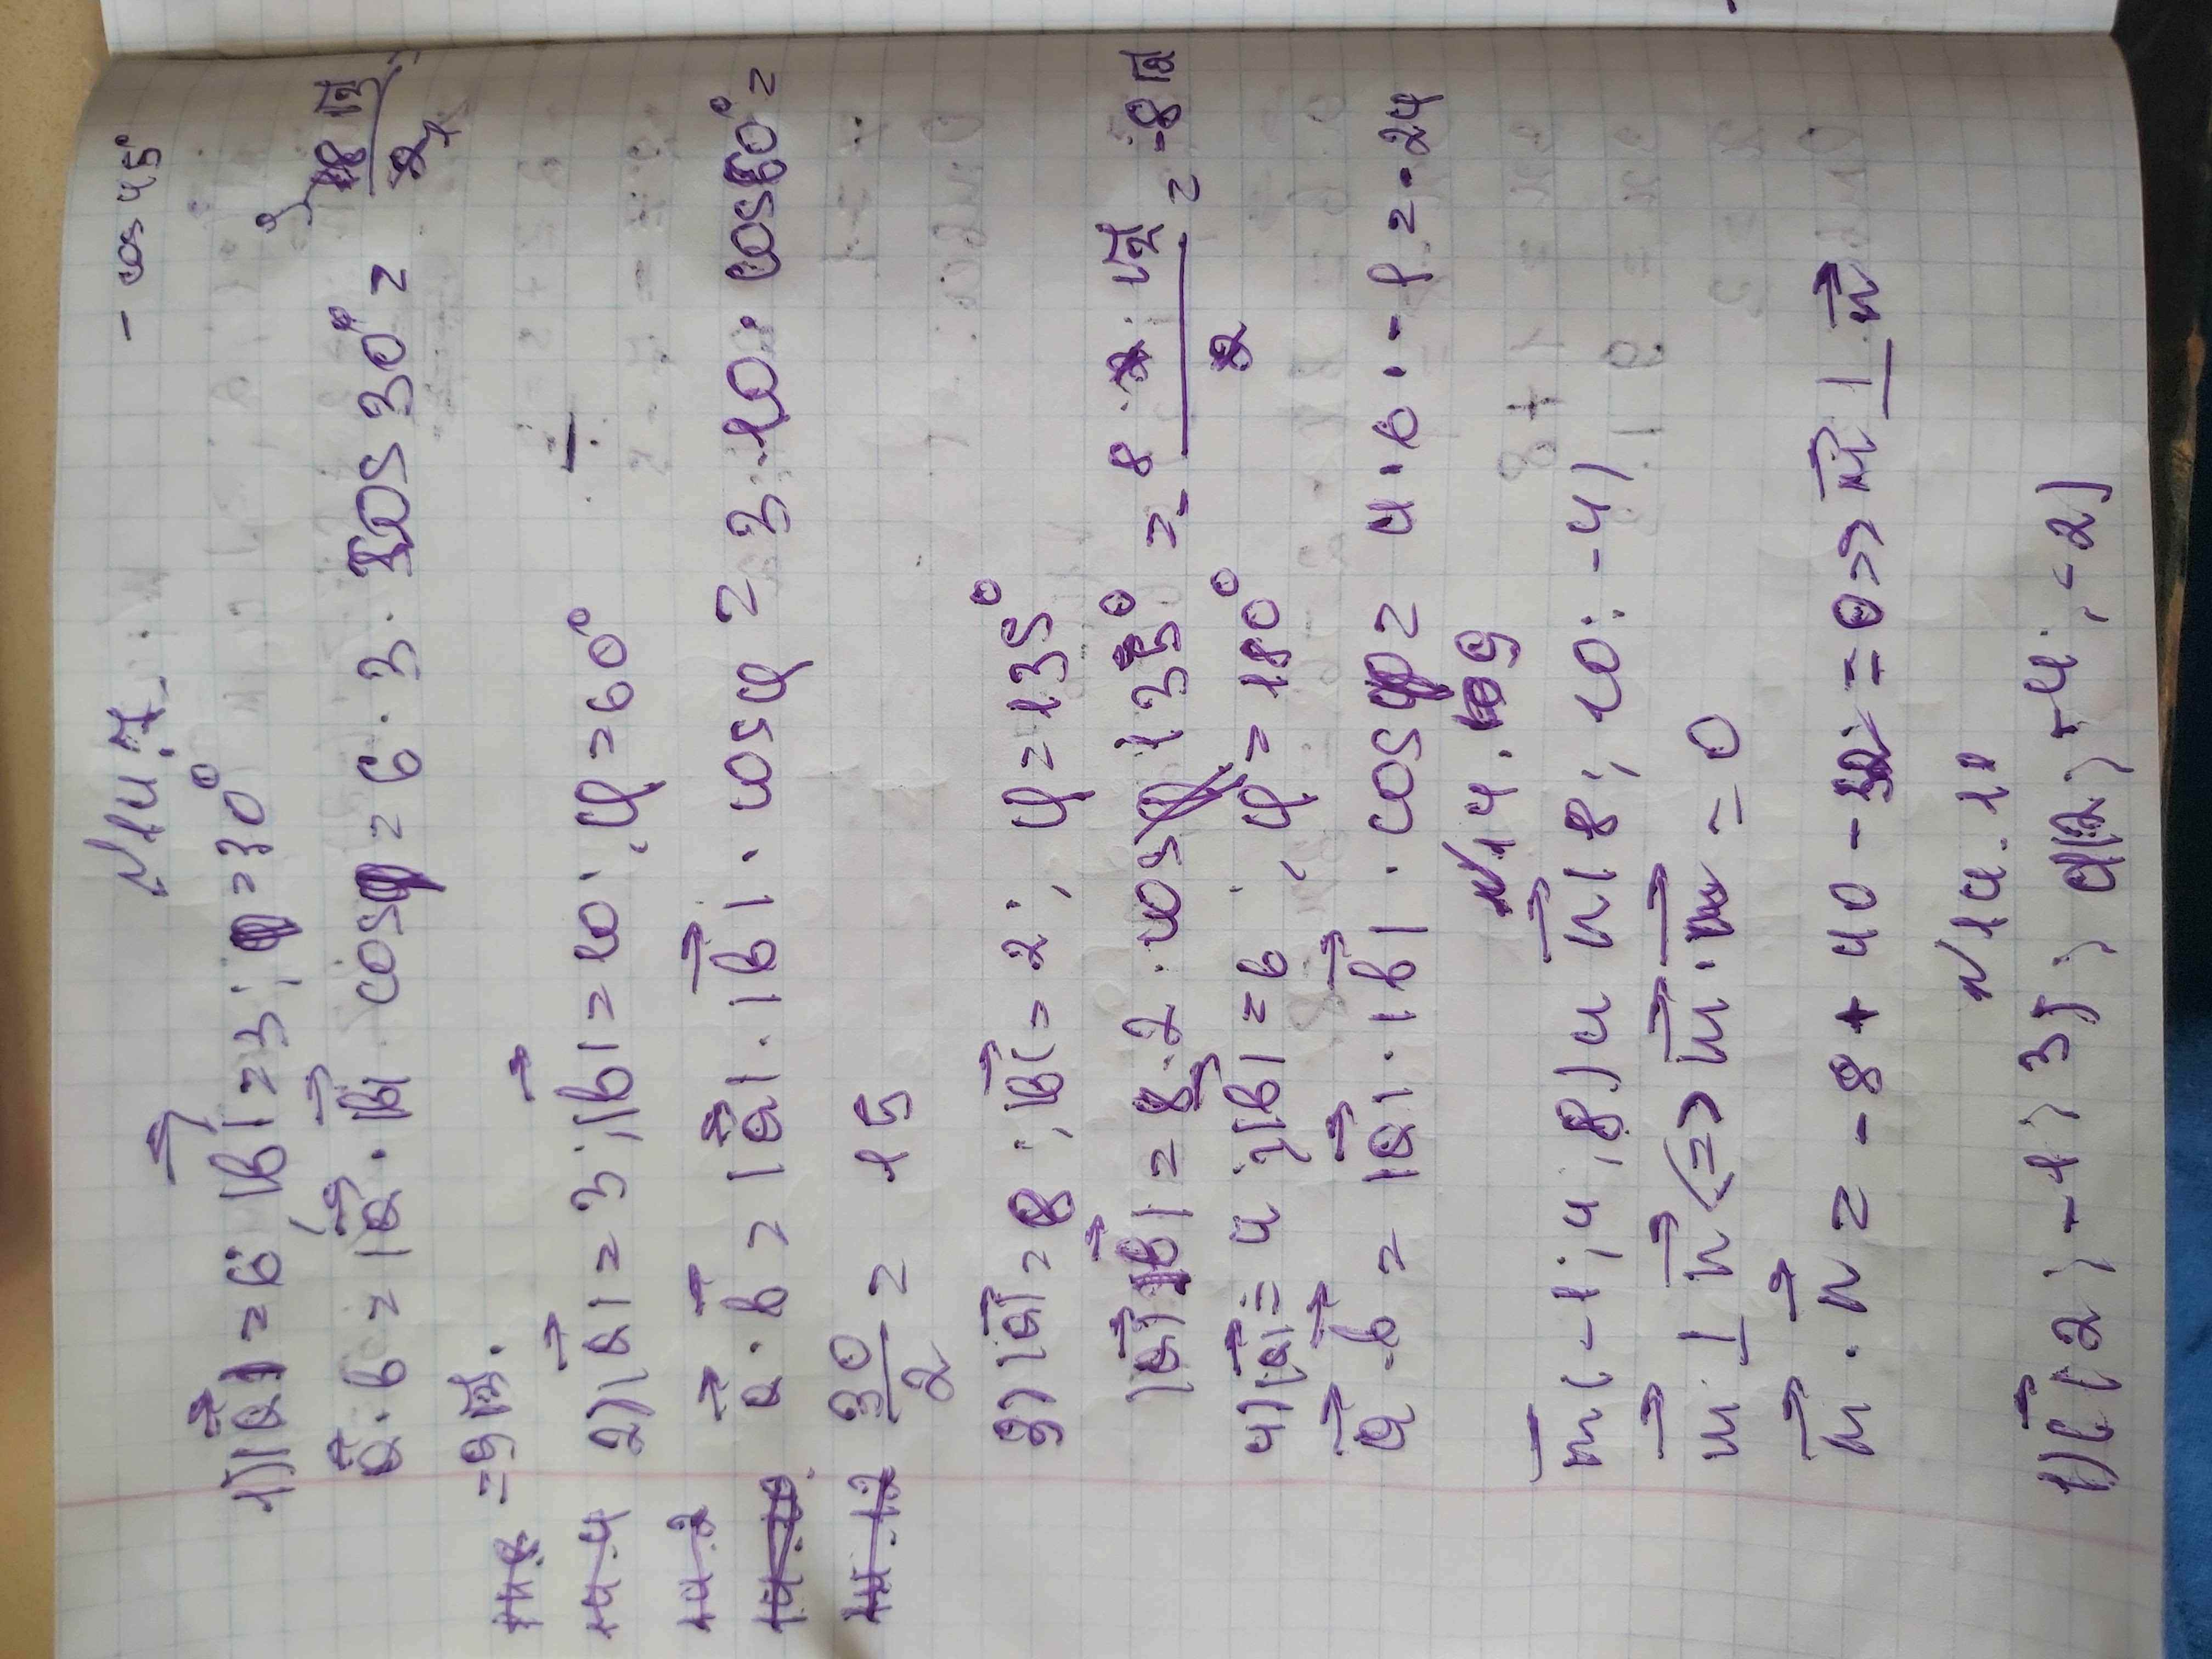 - cos 45°
N 14.7.
1) |a| = 6; |b| = 3; φ = 30°
a · b = |a| · |b| cosφ = 6 · 3 · cos 30° = 18√3 / 2 =
= 9√3.
2) |a| = 3; |b| = 10; φ = 60°
a · b = |a| · |b| · cosφ = 3 · 10 · cos60° =
30/2 = 15
3) |a| = 8; |b| = 2; φ = 135°
|a| |b| = 8 · 2 · cos 135° = - 8 · 2 · √2 / 2 = -8√2
4) |a| = 4; |b| = 6; φ = 180°
a · b = |a| · |b| · cosφ = 4 · 6 · -1 = -24
N 14.9
m(-1; 4; 8) и n(8; 10; -4)
m ⊥ n <=> m · n = 0
m · n = -8 + 40 - 32 = 0 => m ⊥ n
N 14.11
1) (2; -1; 3); (2; -4; -2)
14.4
14.12